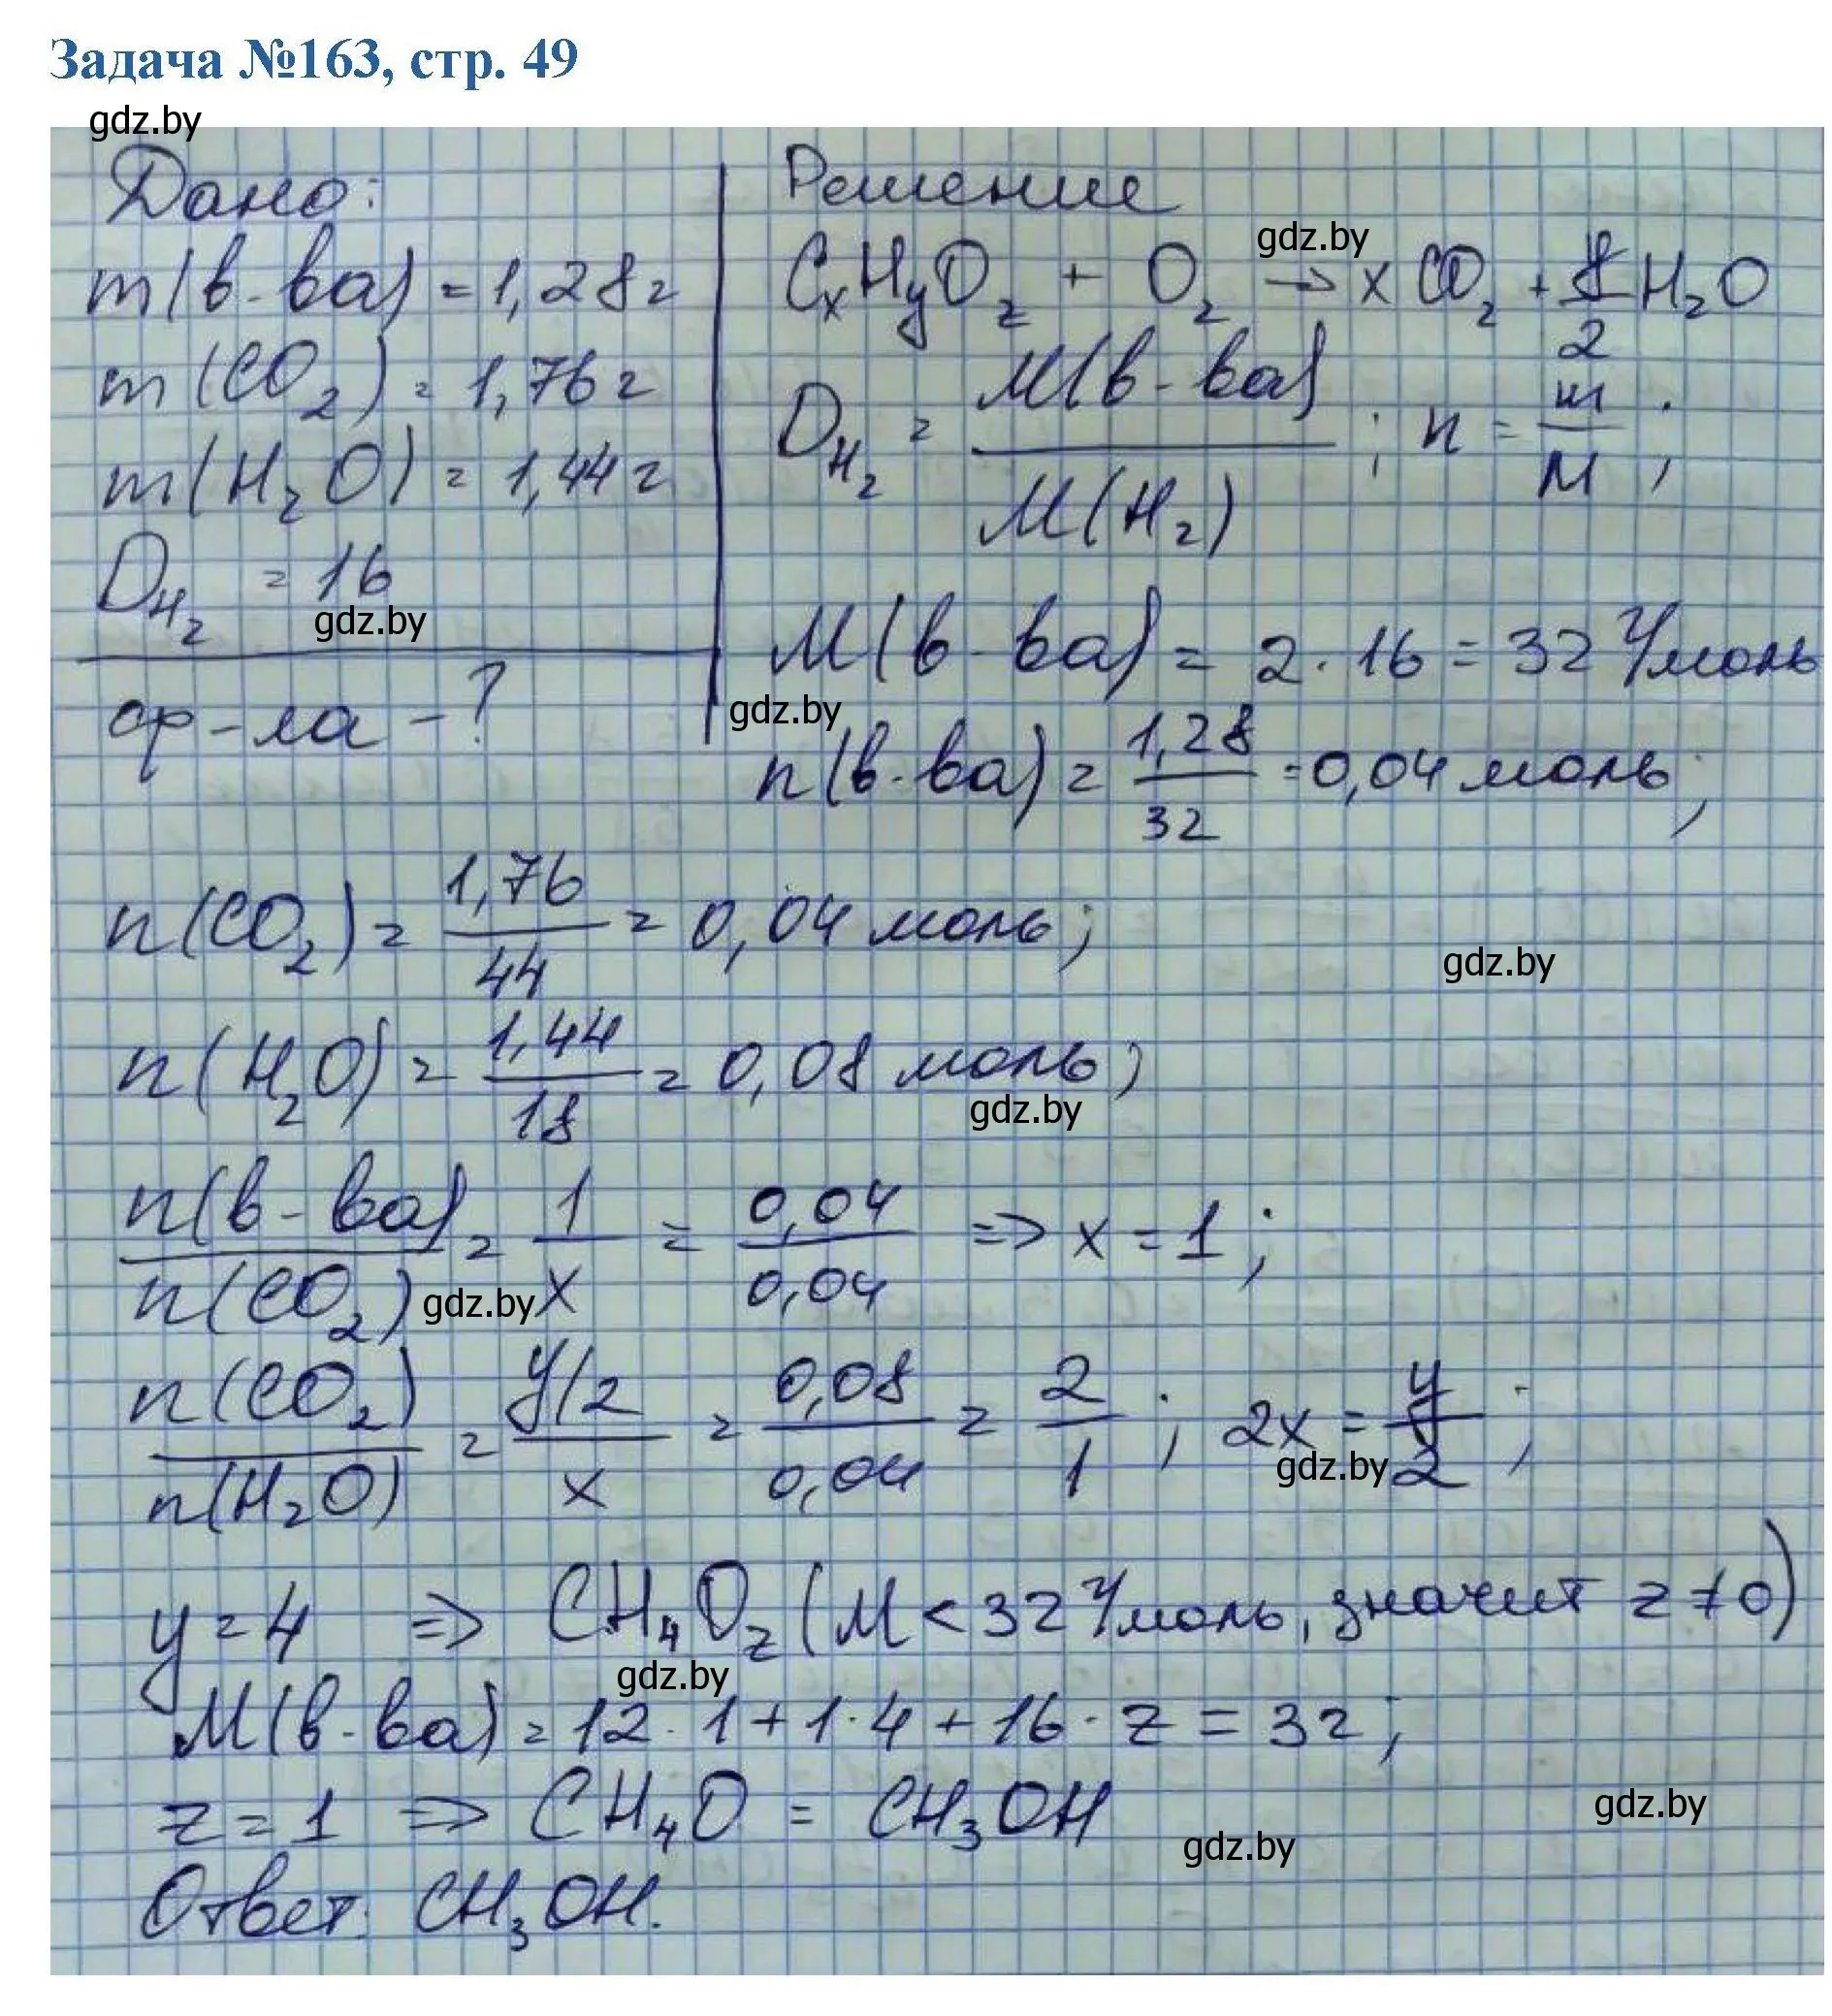 Задача №163, стр. 49
gdz.by
Дано:
m(в-ва) = 1,28г
m(CO₂) = 1,76г
m(H₂O) = 1,44г
D_H₂ = 16
gdz.by
ф-ла - ?
Решение
gdz.by
CₓHᵧO_z + O₂ → xCO₂ + y/2 H₂O
D_H₂ = M(в-ва)/M(H₂); n = m/M;
M(в-ва) = 2·16 = 32 г/моль
gdz.by
n(в-ва) = 1,28/32 = 0,04 моль;
n(CO₂) = 1,76/44 = 0,04 моль;
gdz.by
n(H₂O) = 1,44/18 = 0,08 моль;
gdz.by
n(в-ва)/n(CO₂) = 1/x = 0,04/0,04 => x = 1;
gdz.by
n(CO₂)/n(H₂O) = y/2/x = 0,08/0,04 = 2/1; 2x = y/2;
gdz.by
y = 4 => CH₄O_z (M < 32 г/моль, значит z ≠ 0)
gdz.by
M(в-ва) = 12·1 + 1·4 + 16·z = 32;
z = 1 => CH₄O = CH₃OH
gdz.by
gdz.by
Ответ: CH₃OH.